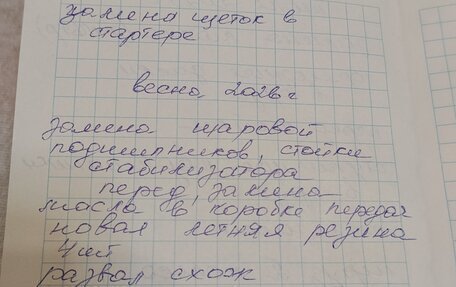 замена щеток в
стартере
весна, 2026 г
замена шаровой
подшипников, стойки
стабилизатора
перед, замена
масла в коробке передач
новая летняя резина
4 шт
развал схож